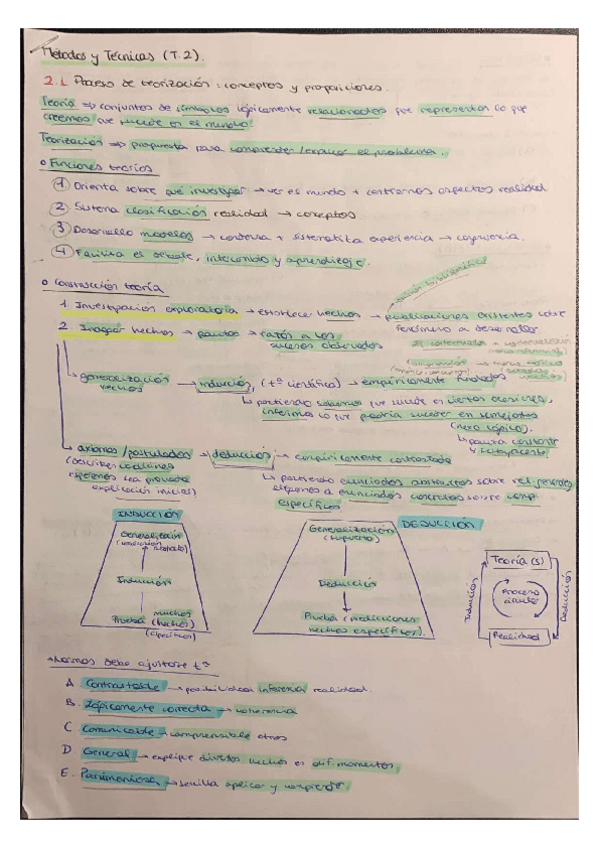 Métodos y Técnicas (T.2).
2.1. Proceso de teorización: conceptos y proposiciones.
Teoría => conjuntos de símbolos lógicamente relacionados que representan lo que
creemos que sucede en el mundo.
Teorización => propuesta para comprender/explicar el problema.
Funciones teorías
1 Orienta sobre qué investigar → ver el mundo + centrarnos aspectos realidad
2 Sistema clasificación realidad → conceptos
3 Desarrollo modelos → condensa + sistematiza experiencia →
4 Facilita el debate, intercambio y aprendizaje.
Construcción teoría
1. Investigación exploratoria → establece hechos → publicaciones existentes sobre
fenómeno a desarrollar
2. Indagar hechos → pautas → razón a los
sucesos observados
generalización → inducción, (tª científica) → empíricamente fundados
hechos
partiendo sabemos que sucede en ciertas ocasiones,
inferimos lo que podría suceder en semejantes
(nexo lógico).
pauta constante
axiomas/postulados → deducción → empíricamente contrastada
(describen
explicación inicial)
partiendo enunciados abstractos sobre rel. generales,
llegamos a enunciados concretos sobre comp.
específicos
INDUCCIÓN
Generalización
(abstracto)
Inducción
Prueba (muchos
hechos)
(específicos)
DEDUCCIÓN
Generalización
(supuesto)
Deducción
Prueba (predicciones
hechos específicos).
Teoría(s)
Inducción
Proceso
circular
Deducción
Realidad
Normas debe ajustarse tª
A Contrastable → posibilidad inferencia realidad.
B. Lógicamente correcta → coherencia
C Comunicable → comprensible otros
D General → explique diversos hechos en dif. momentos.
E. Parsimoniosa → sencilla aplicar y comprender.